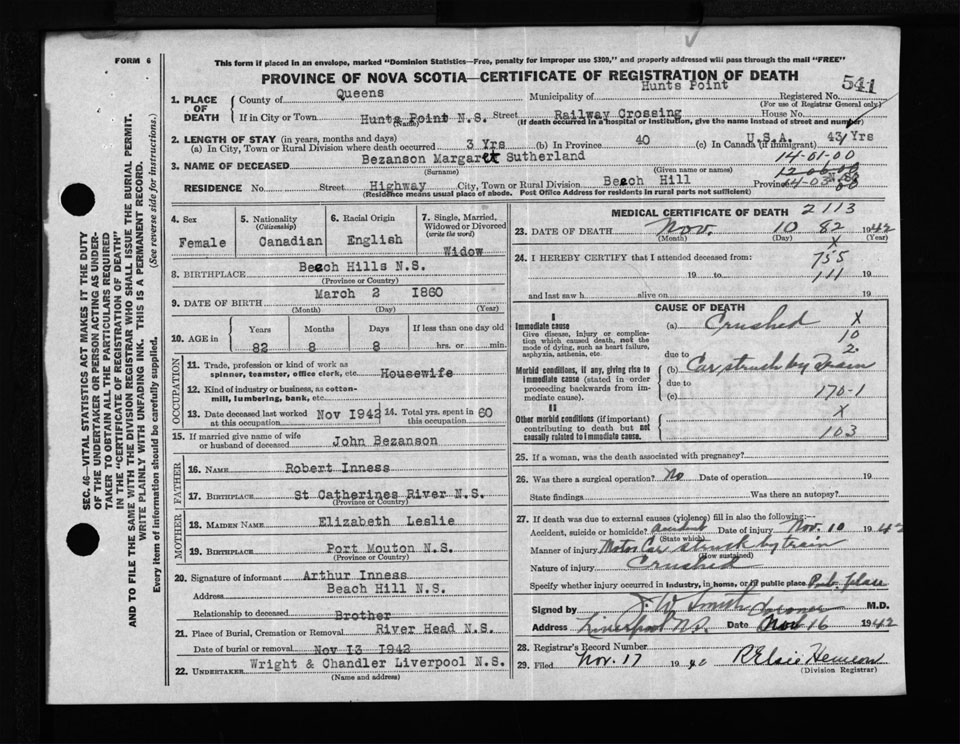 FORM 6
This form if placed in an envelope, marked "Dominion Statistics—Free, penalty for improper use $300," and properly addressed will pass through the mail "FREE"
PROVINCE OF NOVA SCOTIA—CERTIFICATE OF REGISTRATION OF DEATH
541
1. PLACE OF DEATH
County of Queens Municipality of Hunts Point Registered No.
(For use of Registrar General only)
If in City or Town Hunts Point N.S. Street Railway Crossing House No.
(Name) (If death occurred in a hospital or institution, give the name instead of street and number)
2. LENGTH OF STAY (in years, months and days)
(a) In City, Town or Rural Division where death occurred 3 Yrs (b) In Province 40 (c) In Canada (if immigrant) U.S.A. 43 Yrs
14-01-00
3. NAME OF DECEASED Bezanson Margaret Sutherland
(Surname) (Given name or names)
RESIDENCE No. Street Highway City, Town or Rural Division Beach Hill Province
(Residence means usual place of abode. Post Office Address for residents in rural parts not sufficient)
4. Sex
Female
5. Nationality
(Citizenship)
Canadian
6. Racial Origin
English
7. Single, Married, Widowed or Divorced
(write the word)
Widow
8. BIRTHPLACE Beach Hills N.S.
(Province or Country)
9. DATE OF BIRTH March 2 1860
(Month) (Day) (Year)
10. AGE in
Years Months Days If less than one day old
82 8 8 hrs. or min.
OCCUPATION
11. Trade, profession or kind of work as spinner, teamster, office clerk, etc. Housewife
12. Kind of industry or business, as cotton-mill, lumbering, bank, etc.
13. Date deceased last worked at this occupation Nov 1942 14. Total yrs. spent in this occupation 60
15. If married give name of wife or husband of deceased John Bezanson
FATHER
16. NAME Robert Inness
17. BIRTHPLACE St Catherines River N.S.
(Province or Country)
MOTHER
18. MAIDEN NAME Elizabeth Leslie
19. BIRTHPLACE Port Mouton N.S.
(Province or Country)
20. Signature of informant Arthur Inness
Address Beach Hill N.S.
Relationship to deceased Brother
21. Place of Burial, Cremation or Removal River Head N.S.
Date of burial or removal Nov 13 1942
22. UNDERTAKER Wright & Chandler Liverpool N.S.
(Name and address)
MEDICAL CERTIFICATE OF DEATH 2113
23. DATE OF DEATH Nov. 10 82 1942
(Month) (Day) (Year)
X
24. I HEREBY CERTIFY that I attended deceased from: 755
19 to 111 19
and last saw h alive on 19
CAUSE OF DEATH
I
Immediate cause
Give disease, injury or complication which caused death, not the mode of dying, such as heart failure, asphyxia, asthenia, etc.
(a) Crushed X
10
2.
due to
Morbid conditions, if any, giving rise to immediate cause (stated in order proceeding backwards from immediate cause).
(b) Car struck by Train
due to
(c) 170-1
II
X
Other morbid conditions (if important) contributing to death but not causally related to immediate cause.
103
25. If a woman, was the death associated with pregnancy?
26. Was there a surgical operation? No Date of operation 19
State findings Was there an autopsy?
27. If death was due to external causes (violence) fill in also the following:—
Accident, suicide or homicide? Accident Date of injury Nov. 10 1942
(State which)
Manner of injury Motor Car struck by train
(How sustained)
Nature of injury Crushed
Specify whether injury occurred in industry, in home, or in public place Pub. place
Signed by J. W. Smith Coroner M.D.
Address Liverpool N.S. Date Nov 16 1942
28. Registrar's Record Number
29. Filed Nov. 17 19
(Division Registrar)
SEC. 46—VITAL STATISTICS ACT MAKES IT THE DUTY OF THE UNDERTAKER OR PERSON ACTING AS UNDERTAKER TO OBTAIN ALL THE PARTICULARS REQUIRED IN THE "CERTIFICATE OF REGISTRATION OF DEATH"
AND TO FILE THE SAME WITH THE DIVISION REGISTRAR WHO SHALL ISSUE THE BURIAL PERMIT.
WRITE PLAINLY WITH UNFADING INK. THIS IS A PERMANENT RECORD.
Every item of information should be carefully supplied. (See reverse side for instructions.)